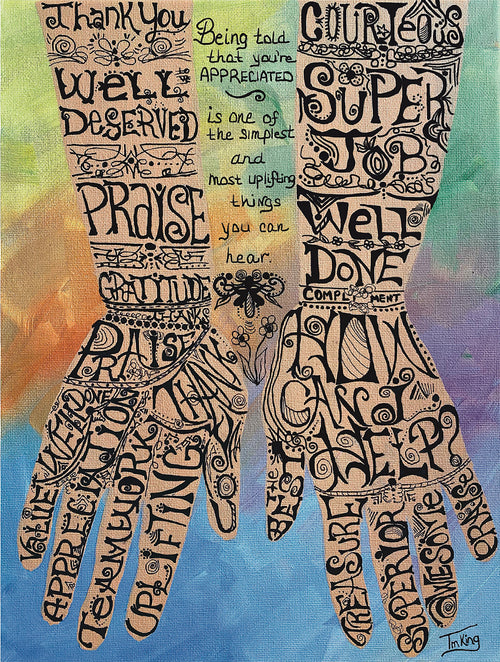 Thank You
Well
Deserved
Praise
Gratitude
Thanks
Praise
Thank
Value
Well Done
Appreciation
Teamwork
Uplifting
Being told
that you're
APPRECIATED
is one of
the simplest
and
most uplifting
things
you can
hear.
Courteous
Super
Job
Well
Done
Compliment
How
Can I
Help
Be The
Best
Treasure
Superior
Awesome
TmKing